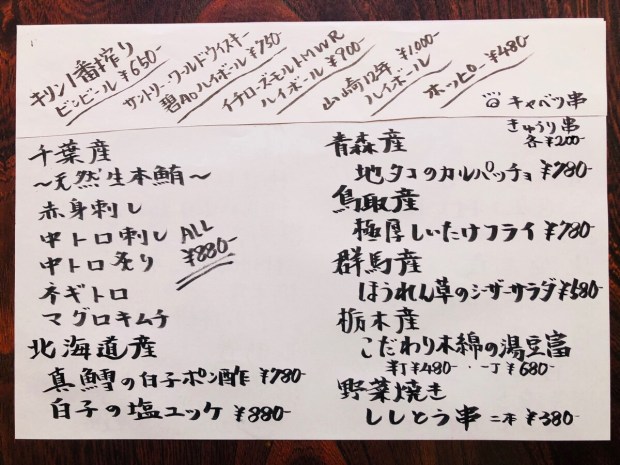 キリン一番搾り
ビンビール ¥650-
サントリーワールドウイスキー
碧Aoハイボール ¥750
イチローズモルトMWR
ハイボール ¥900-
山崎12年 ¥1,000-
ハイボール
ホッピー ¥480-
キャベツ串
きゅうり串
各¥200-
千葉産
～天然生本鮪～
赤身刺し
中トロ刺し
中トロ炙り
ALL
¥880-
ネギトロ
マグロキムチ
北海道産
真鱈の白子ポン酢 ¥780-
白子の塩ユッケ ¥880-
青森産
地タコのカルパッチョ ¥780-
鳥取産
極厚しいたけフライ ¥780-
群馬産
ほうれん草のシーザーサラダ ¥580-
栃木産
こだわり木綿の湯豆富
半丁¥480-・一丁¥680-
野菜焼き
ししとう串 二本 ¥380-